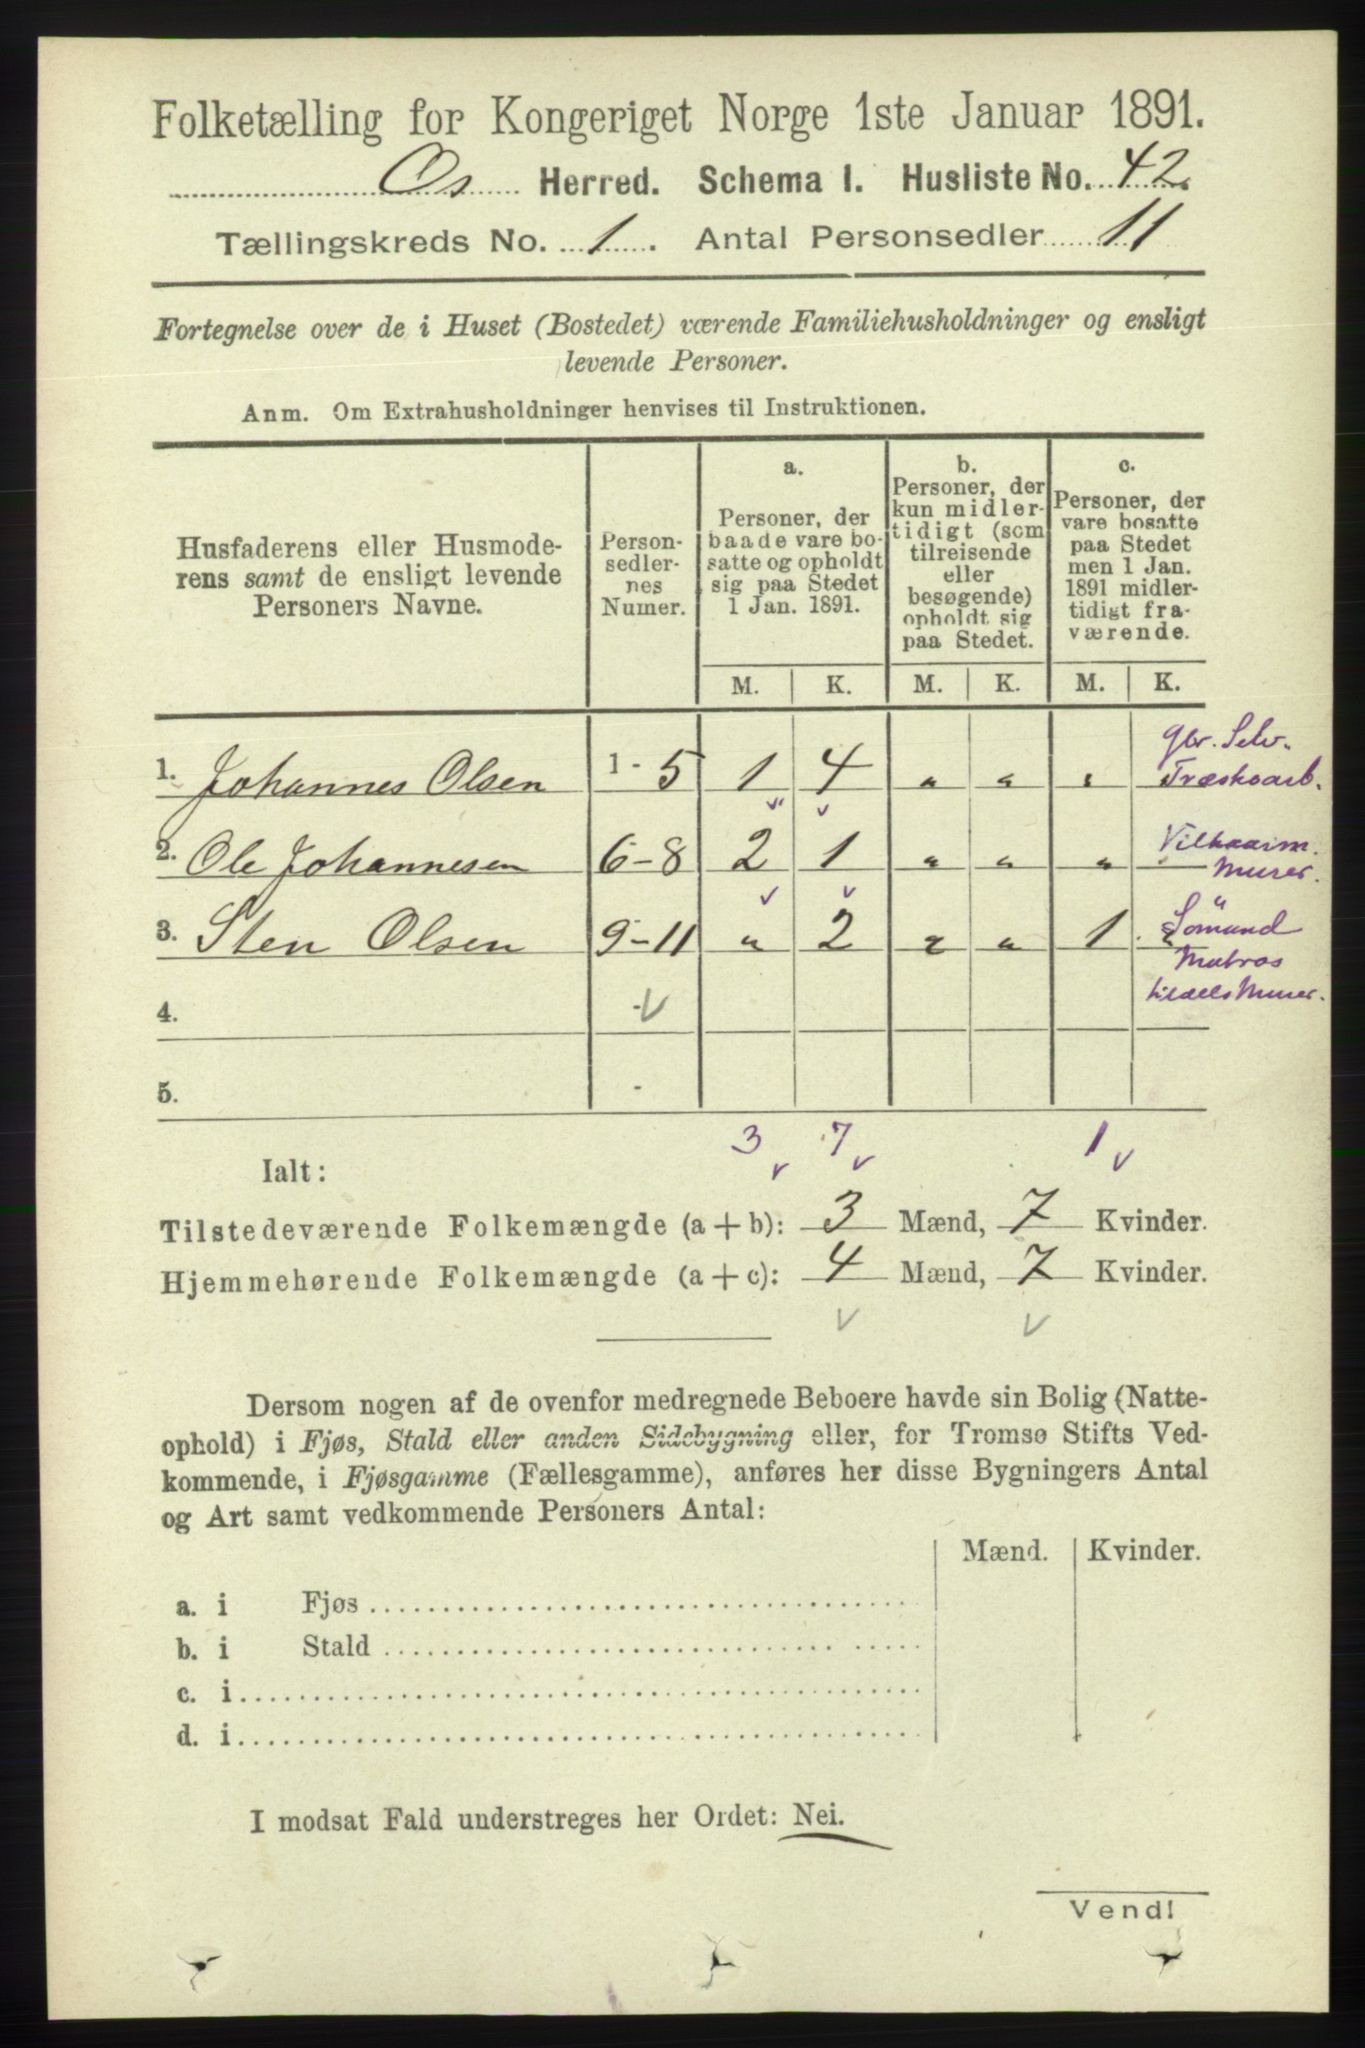 Folketælling for Kongeriget Norge 1ste Januar 1891.
Os Herred. Schema I. Husliste No. 42.
Tællingskreds No. 1. Antal Personsedler 11
Fortegnelse over de i Huset (Bostedet) værende Familiehusholdninger og ensligt
levende Personer.
Anm. Om Extrahusholdninger henvises til Instruktionen.
Husfaderens eller Husmode-
rens samt de ensligt levende
Personers Navne.
Person-
sedler-
nes
Numer.
a.
Personer, der
baade vare bo-
satte og opholdt
sig paa Stedet
1 Jan. 1891.
b.
Personer, der
kun midler-
tidigt (som
tilreisende
eller
besøgende)
opholdt sig
paa Stedet.
c.
Personer, der
vare bosatte
paa Stedet
men 1 Jan.
1891 midler-
tidigt fra-
værende.
M. K. M. K. M. K.
1. Johannes Olsen 1-5 1 4 " " " gbr. Selv.
Træskoarb.
2. Ole Johannesen 6-8 2 1 " " "
Murer.
3. Sten Olsen 9-11 " 2 " " 1 " Sömand
Matros
tildels Murer.
4.
5.
3 7 1
Ialt:
Tilstedeværende Folkemængde (a+b): 3 Mænd, 7 Kvinder.
Hjemmehørende Folkemængde (a+c): 4 Mænd, 7 Kvinder.
Dersom nogen af de ovenfor medregnede Beboere havde sin Bolig (Natte-
ophold) i Fjøs, Stald eller anden Sidebygning eller, for Tromsø Stifts Ved-
kommende, i Fjøsgamme (Fællesgamme), anføres her disse Bygningers Antal
og Art samt vedkommende Personers Antal:
Mænd. Kvinder.
a. i Fjøs
b. i Stald
c. i
d. i
I modsat Fald understreges her Ordet: Nei.
Vend!